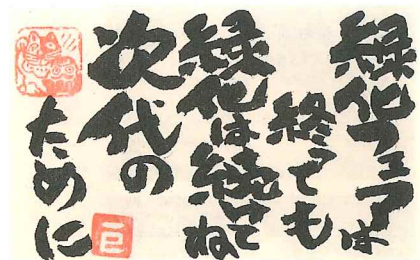 緑化フェアは
終っても
緑化は続けてね
次代の
ために
巨